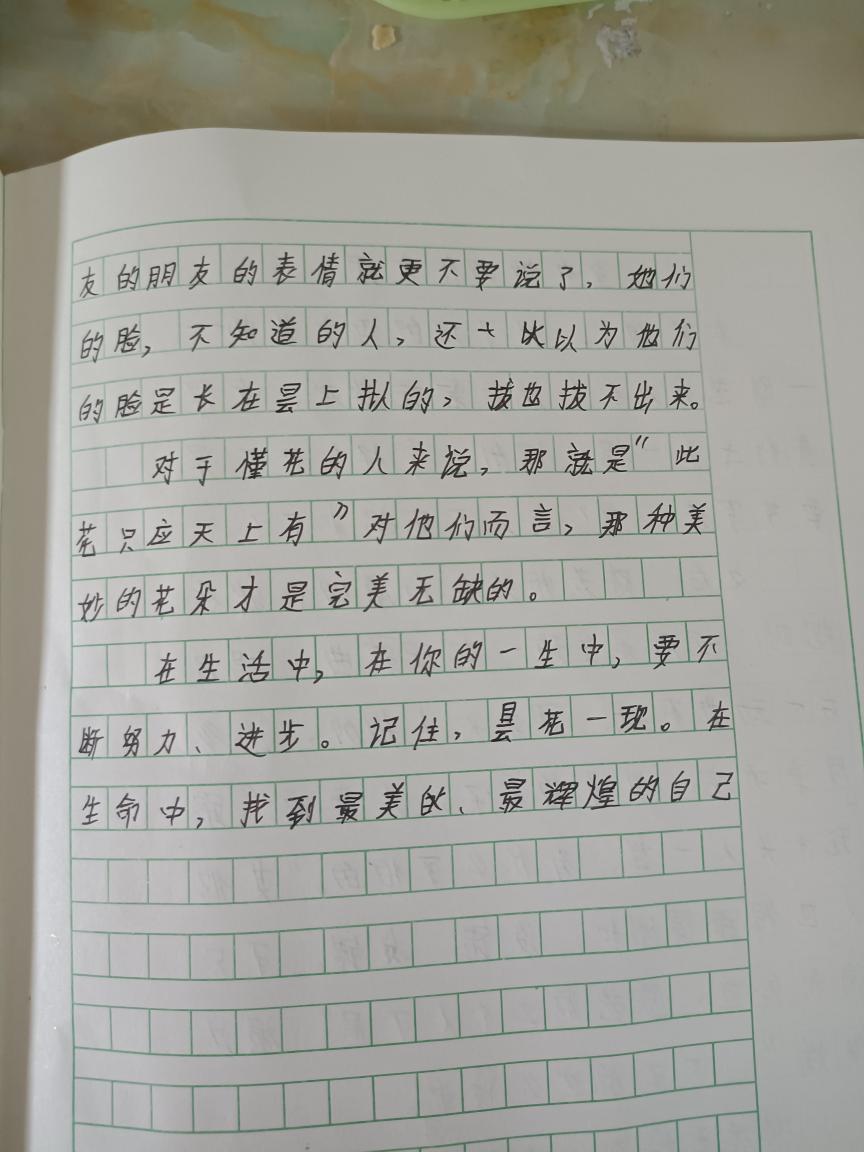 友的朋友的表情就更不要说了，她们
的脸，不知道的人，还以为他们
的脸是长在昙上的，拔也拔不出来。
对于懂花的人来说，那就是“此
花只应天上有”对他们而言，那种美
妙的花朵才是完美无缺的。
在生活中，在你的一生中，要不
断努力、进步。记住，昙花一现。在
生命中，找到最美的、最辉煌的自己